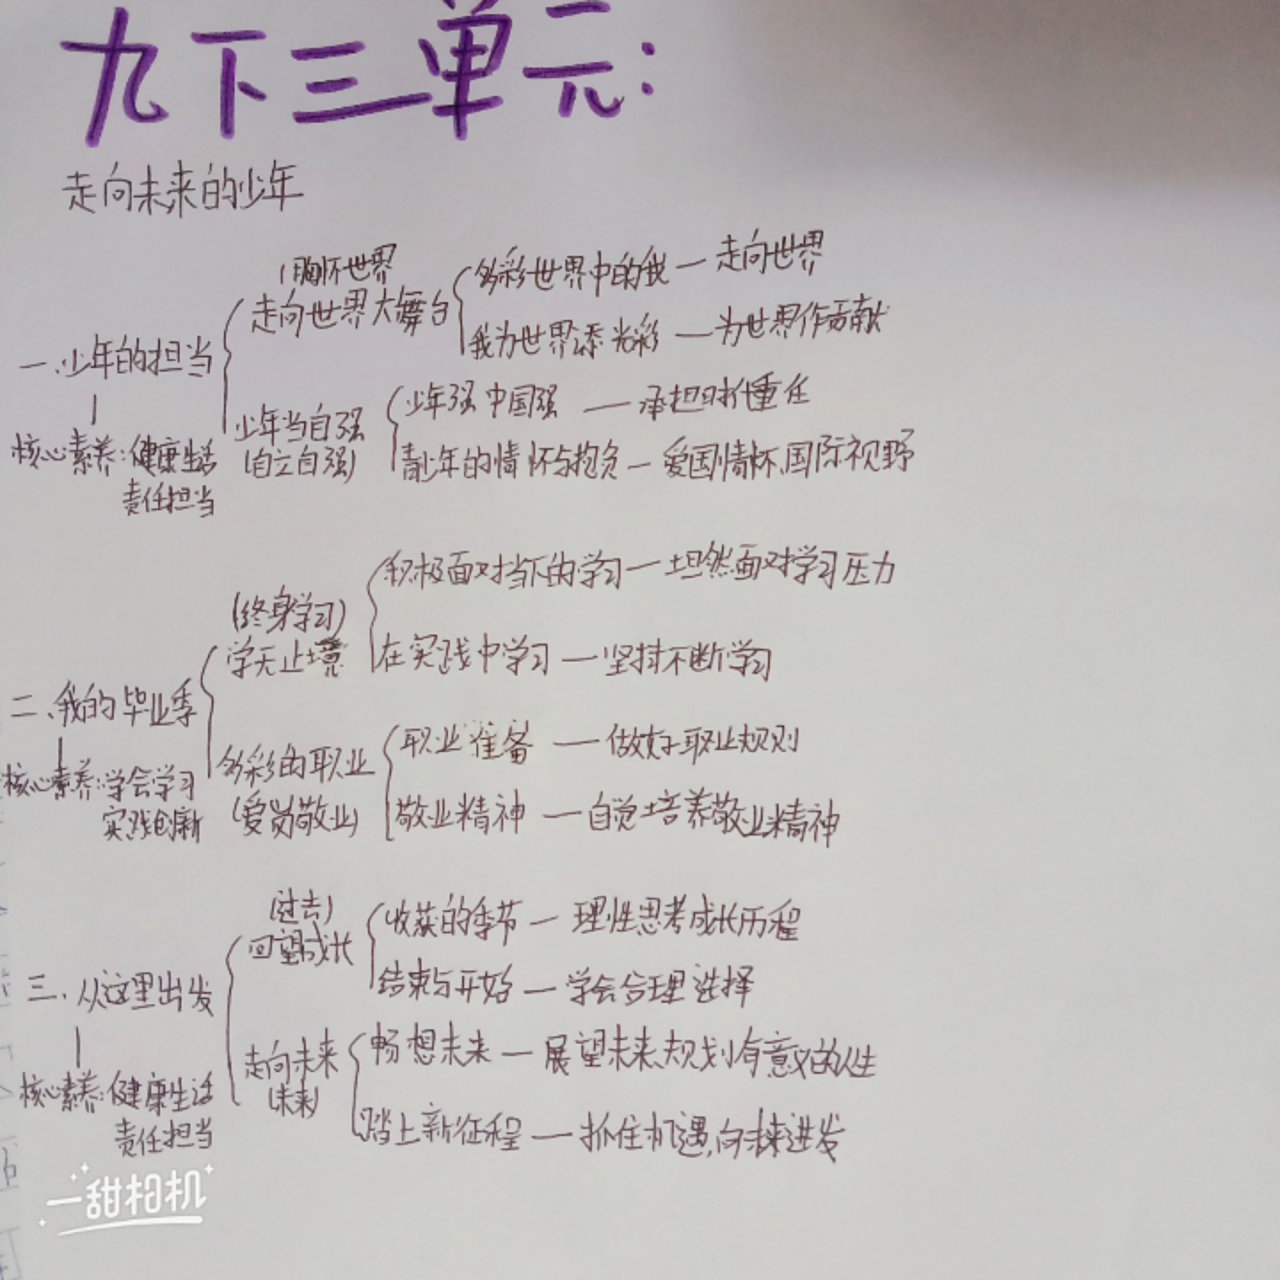 九下三单元:
走向未来的少年
一、少年的担当
核心素养:健康生活
责任担当
(胸怀世界
走向世界大舞台
多彩世界中的我—走向世界
我为世界添光彩—为世界作贡献
少年当自强
(自立自强)
少年强中国强—承担时代重任
青少年的情怀与抱负—爱国情怀、国际视野
二、我的毕业季
核心素养:学会学习
实践创新
(终身学习)
学无止境
积极面对当下的学习—坦然面对学习压力
在实践中学习—坚持不断学习
多彩的职业
(爱岗敬业)
职业准备—做好职业规则
敬业精神—自觉培养敬业精神
三、从这里出发
核心素养:健康生活
责任担当
(过去)
回望成长
收获的季节—理性思考成长历程
结束与开始—学会合理选择
走向未来
(未来)
畅想未来—展望未来、规划有意义的人生
踏上新征程—抓住机遇,向未来进发
一甜相机